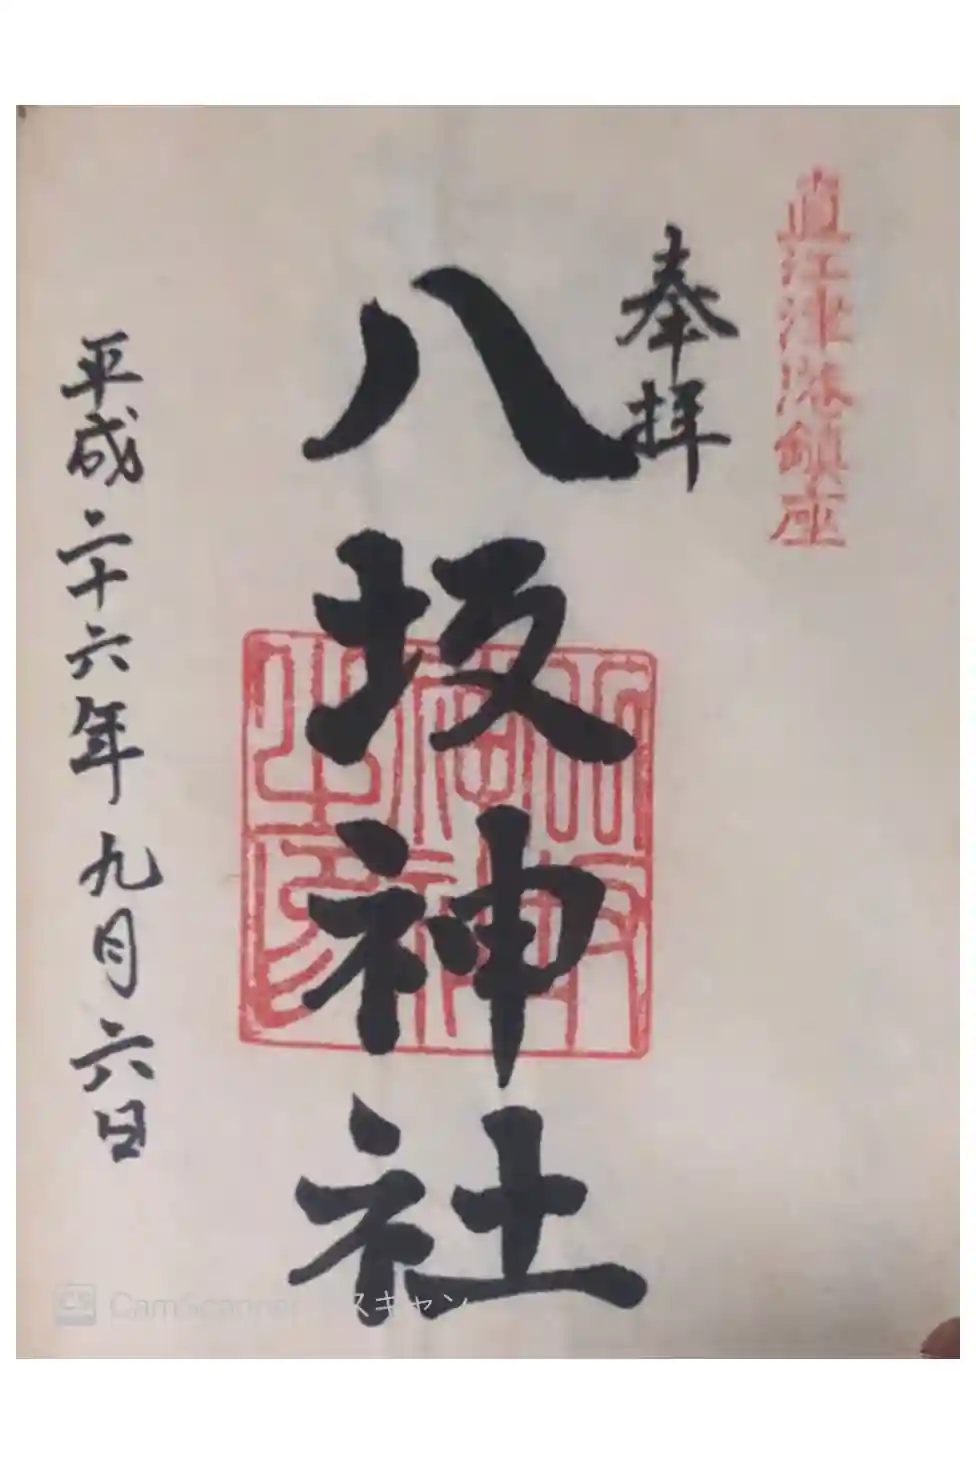 直江津港鎮座
奉拝
八坂神社
平成二十六年九月六日
CS CamScanner でスキャン